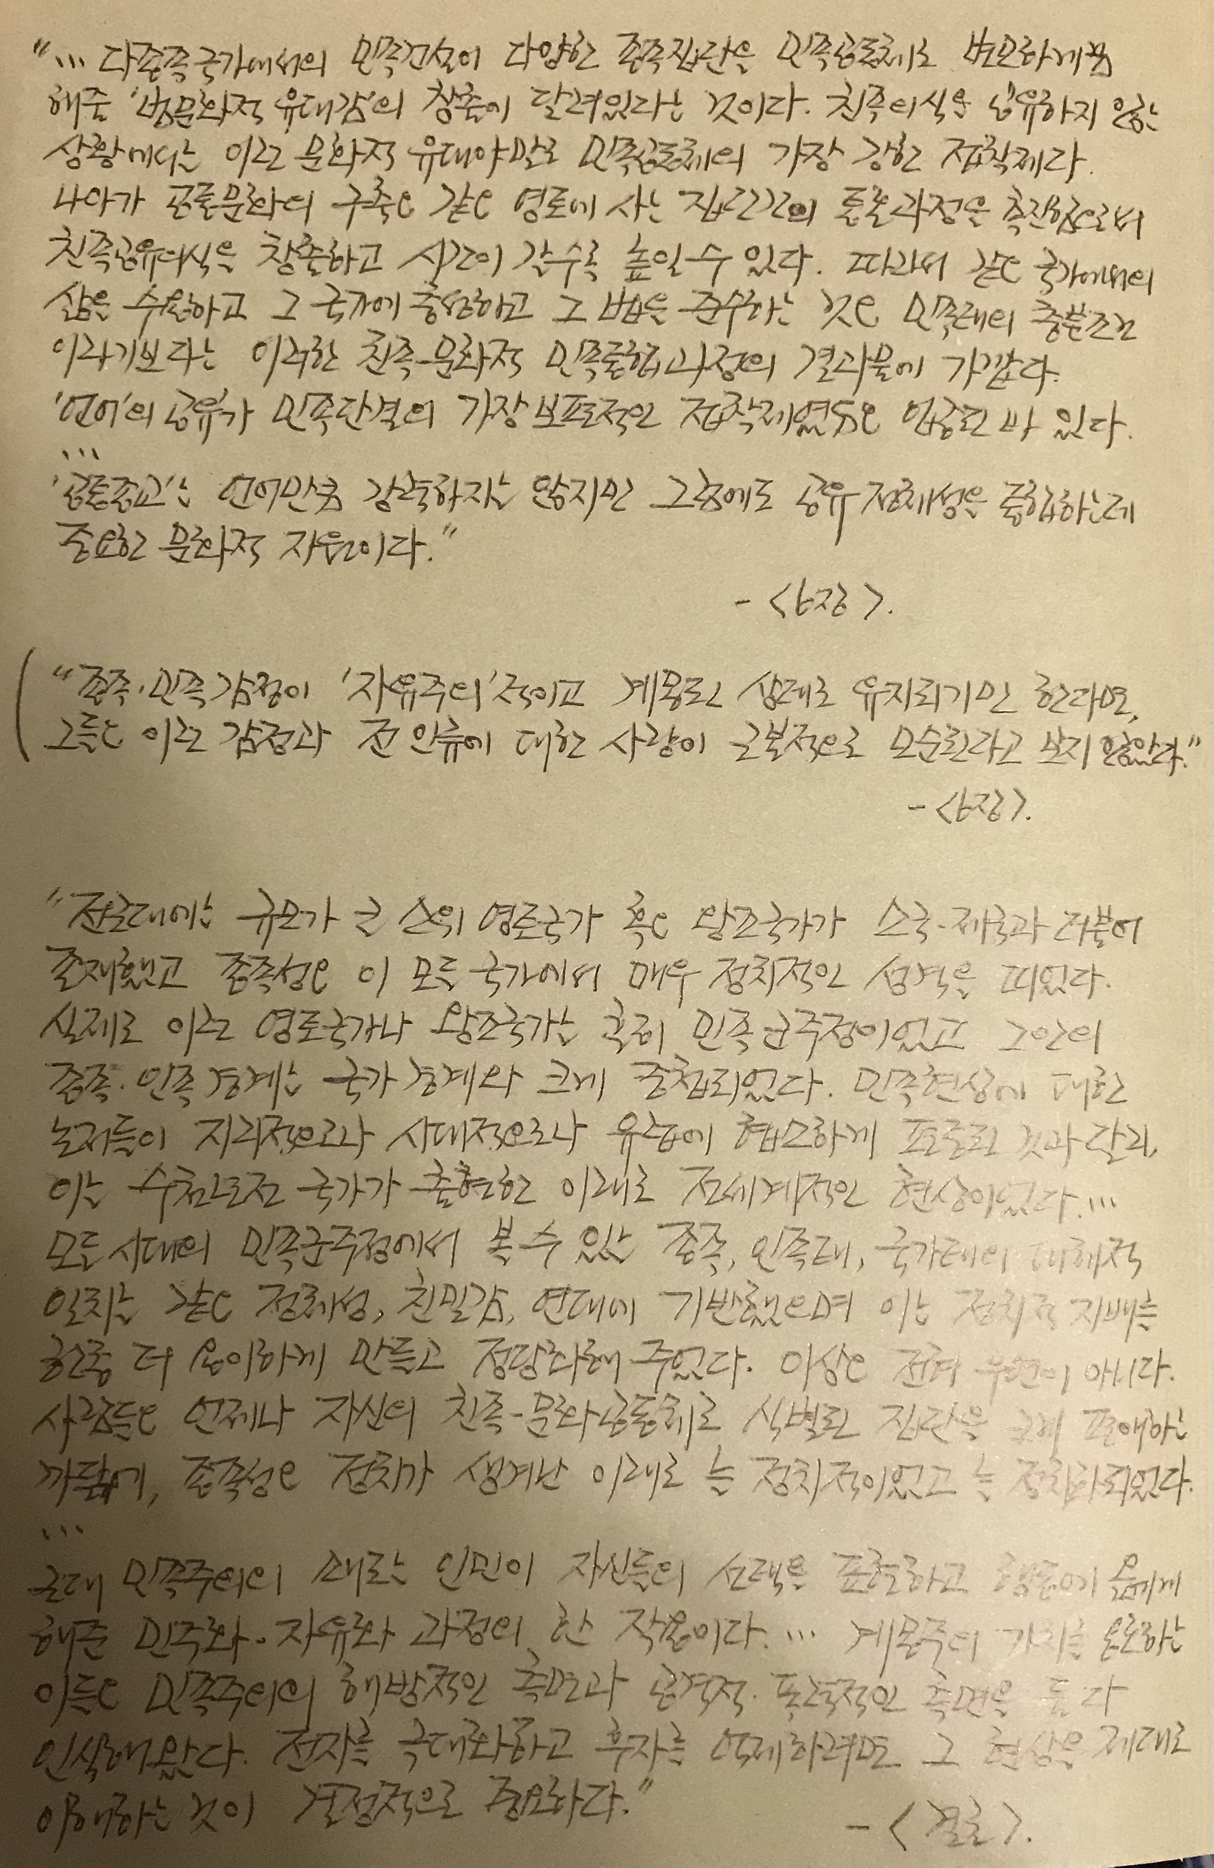 "… 다종족국가에서의 민족건설이 다양한 종족집단을 민족공동체로 변모하게끔
해줄 '범문화적 유대감'의 창출에 달려있다는 것이다. 친족의식을 공유하지 않는
상황에서는 이런 문화적 유대야말로 민족공동체의 가장 강한 접착제다.
나아가 공통문화의 구축은 같은 영토에 사는 집단간의 통혼과정을 촉진함으로써
친족공유의식을 창출하고 시간이 갈수록 높일 수 있다. 따라서 같은 국가에서의
삶을 수용하고 그 국가에 충성하고 그 법을 준수하는 것은 민족됨의 충분조건
이라기보다는 이러한 친족-문화적 민족통합과정의 결과물에 가깝다.
'언어'의 공유가 민족단결의 가장 보편적인 접착제였음은 입증된 바 있다.
…
'공통종교'는 언어만큼 강력하지는 않지만 그럼에도 공유 정체성을 통합하는데
중요한 문화적 자원이다."
- <6장>.
"종족·민족감정이 '자유주의'적이고 계몽된 상태로 유지되기만 한다면,
그들은 이런 감정과 전 인류에 대한 사랑이 근본적으로 모순된다고 보지 않았다."
- <6장>.
"전근대에는 규모가 큰 소위 영토국가 혹은 왕조국가가 소국·제국과 더불어
존재했고 종족성은 이 모든 국가에서 매우 정치적인 성격을 띠었다.
실제로 이런 영토국가나 왕조국가는 흔히 민족군주정이었고 그 안의
종족·민족 경계는 국가 경계와 크게 중첩되었다. 민족현상에 대한
논저들이 지리적으로나 시대적으로나 유럽에 협소하게 편중된 것과 달리,
이는 수천년전 국가가 출현한 이래로 전세계적인 현상이었다.…
모든 시대의 민족군주정에서 볼 수 있는 종족, 민족됨, 국가됨의 대체적
일치는 같은 정체성, 친밀감, 연대에 기반했으며 이는 정치적 지배를
한층 더 용이하게 만들고 정당화해 주었다. 이상은 전혀 우연이 아니다.
사람들은 언제나 자신의 친족-문화공동체로 식별된 집단을 크게 편애하는
까닭에, 종족성은 정치가 생겨난 이래로 늘 정치적이었고 늘 정치화되었다.
…
근대 민족주의의 도래는 인민이 자신들의 선택을 표출하고 행동에 옮기게
해준 민주화·자유화 과정의 한 작용이다.… 계몽주의 가치를 옹호하는
이들은 민족주의의 해방적인 측면과 공격적·폭력적인 측면을 둘 다
인식해왔다. 전자를 극대화하고 후자를 억제하려면 그 현상을 제대로
이해하는 것이 결정적으로 중요하다."
- <결론>.